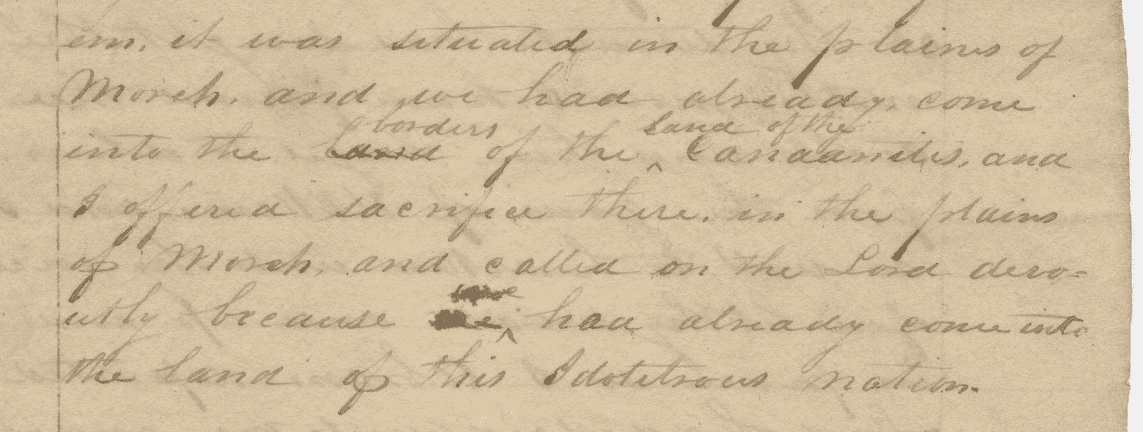 em. it was situated in the plains of
Moreh. and we had already, come
borders land of the
into the land of the Canaanites, and
I offered sacrifice there. in the plains
of Moreh, and called on the Lord devo-
we
utly because had already come into
the land of this Idolitrous nation.